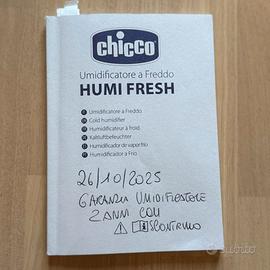 chicco
Umidificatore a Freddo
HUMI FRESH
Umidificatore a Freddo
Cold humidifier
Humidificateur à froid
Kaltluftbefeuchter
Humidificador de vapor frío
Humidificador a Frio
26/10/2025
GARANZIA UMIDIFICATORE
2 ANNI CON
SCONTRINO
subito